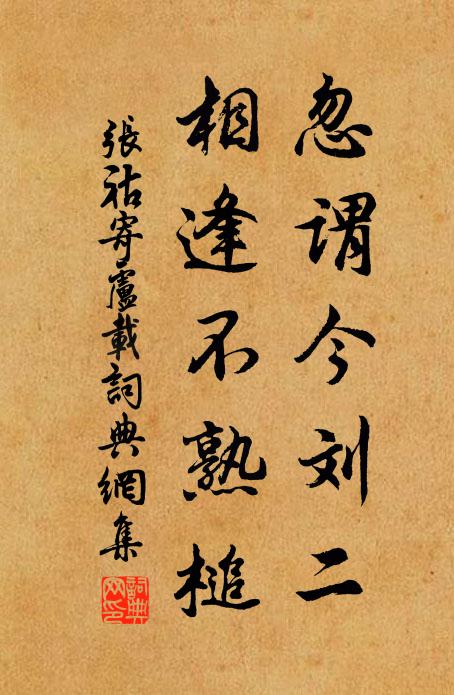 忽谓今刘二
相逢不熟槌
張祜寄盧載詞典網集
詞典網印